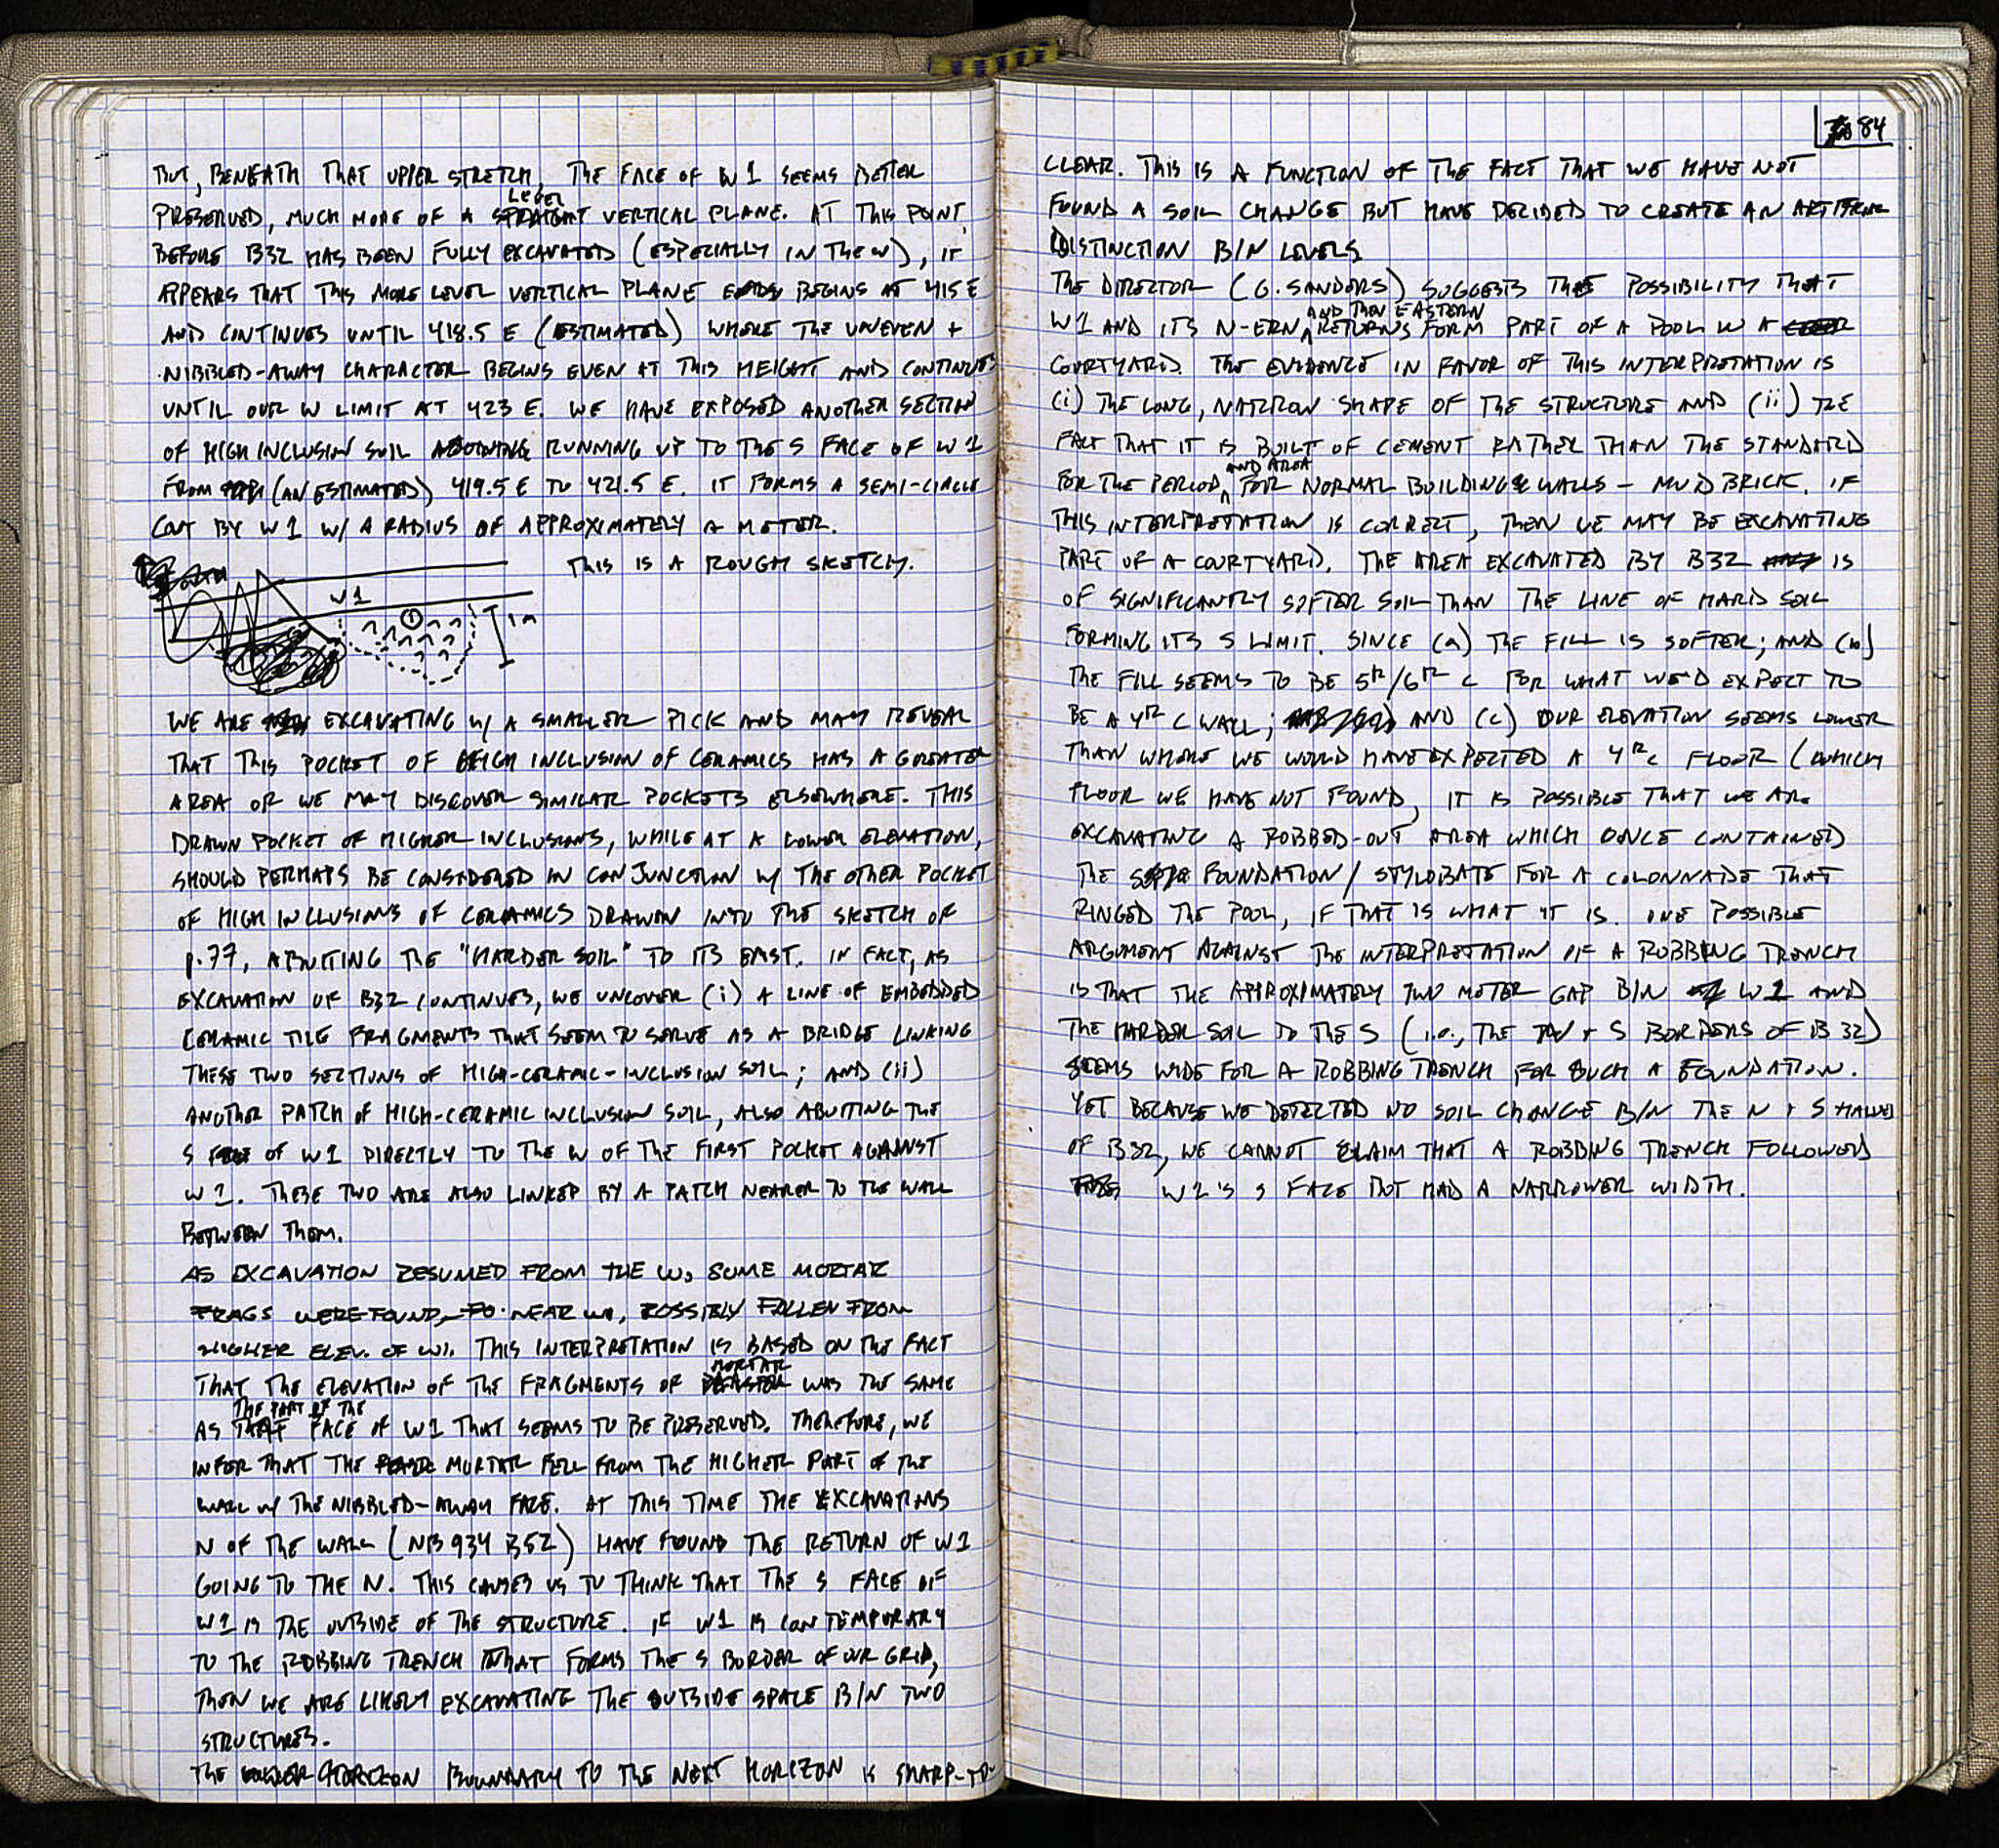 BUT, BENEATH THAT UPPER STRETCH, THE FACE OF W1 SEEMS BETTER
LEVEL
PRESERVED, MUCH MORE OF A STRAIGHT VERTICAL PLANE. AT THIS POINT,
BEFORE B32 HAS BEEN FULLY EXCAVATED (ESPECIALLY IN THE W), IT
APPEARS THAT THIS MORE LEVEL VERTICAL PLANE BEGINS AT 415 E
AND CONTINUES UNTIL 418.5 E (ESTIMATED) WHERE THE UNEVEN +
NIBBLED-AWAY CHARACTER BEGINS EVEN AT THIS HEIGHT AND CONTINUES
UNTIL OUR W LIMIT AT 423 E. WE HAVE EXPOSED ANOTHER SECTION
OF HIGH INCLUSION SOIL RUNNING UP TO THE S FACE OF W1
FROM (AN ESTIMATED) 419.5 E TO 421.5 E. IT FORMS A SEMI-CIRCLE
CUT BY W1 W/ A RADIUS OF APPROXIMATELY A METER.
THIS IS A ROUGH SKETCH.
W1
1
1m
WE ARE EXCAVATING W/ A SMALLER PICK AND MAY REVEAL
THAT THIS POCKET OF HIGH INCLUSION OF CERAMICS HAS A GREATER
AREA OR WE MAY DISCOVER SIMILAR POCKETS ELSEWHERE. THIS
DRAWN POCKET OF HIGHER INCLUSIONS, WHILE AT A LOWER ELEVATION,
SHOULD PERHAPS BE CONSIDERED IN CONJUNCTION W/ THE OTHER POCKET
OF HIGH INCLUSIONS OF CERAMICS DRAWN INTO THE SKETCH OF
p.77, ABUTTING THE "HARDER SOIL" TO ITS EAST. IN FACT, AS
EXCAVATION OF B32 CONTINUES, WE UNCOVER (i) A LINE OF EMBEDDED
CERAMIC TILE FRAGMENTS THAT SEEM TO SERVE AS A BRIDGE LINKING
THESE TWO SECTIONS OF HIGH-CERAMIC-INCLUSION SOIL; AND (ii)
ANOTHER PATCH OF HIGH-CERAMIC INCLUSION SOIL, ALSO ABUTTING THE
S FACE OF W1 DIRECTLY TO THE W OF THE FIRST POCKET AGAINST
W1. THESE TWO ARE ALSO LINKED BY A PATCH NEARER TO THE WALL
BETWEEN THEM.
AS EXCAVATION RESUMED FROM THE W, SOME MORTAR
FRAGS WERE FOUND, TO NEAR W1, POSSIBLY FALLEN FROM
HIGHER ELEV. OF W1. THIS INTERPRETATION IS BASED ON THE FACT
MORTAR
THAT THE ELEVATION OF THE FRAGMENTS OF PLASTER WAS THE SAME
THE PART OF THE
AS THAT FACE OF W1 THAT SEEMS TO BE PRESERVED. THEREFORE, WE
INFER THAT THE MORTAR FELL FROM THE HIGHER PART OF THE
WALL W/ THE NIBBLED-AWAY FACE. AT THIS TIME THE EXCAVATIONS
N OF THE WALL (NB 934 B52) HAVE FOUND THE RETURN OF W1
GOING TO THE N. THIS CAUSES US TO THINK THAT THE S FACE OF
W1 IS THE OUTSIDE OF THE STRUCTURE. IF W1 IS CONTEMPORARY
TO THE ROBBING TRENCH THAT FORMS THE S BORDER OF OUR GRID,
THEN WE ARE LIKELY EXCAVATING THE OUTSIDE SPACE B/N TWO
STRUCTURES.
THE BOUNDARY TO THE NEXT HORIZON IS SHARP-TO-
84
CLEAR. THIS IS A FUNCTION OF THE FACT THAT WE HAVE NOT
FOUND A SOIL CHANGE BUT HAVE DECIDED TO CREATE AN ARTIFICIAL
DISTINCTION B/N LEVELS.
THE DIRECTOR (G. SANDERS) SUGGESTS THE POSSIBILITY THAT
AND THEN EASTERN
W1 AND ITS N-ERN RETURNS FORM PART OF A POOL W A
COURTYARD. THE EVIDENCE IN FAVOR OF THIS INTERPRETATION IS
(i) THE LONG, NARROW SHAPE OF THE STRUCTURE AND (ii) THE
FACT THAT IT IS BUILT OF CEMENT RATHER THAN THE STANDARD
AND AREA
FOR THE PERIOD FOR NORMAL BUILDING WALLS - MUD BRICK. IF
THIS INTERPRETATION IS CORRECT, THEN WE MAY BE EXCAVATING
PART OF A COURTYARD. THE AREA EXCAVATED BY B32 IS
OF SIGNIFICANTLY SOFTER SOIL THAN THE LINE OF HARD SOIL
FORMING ITS S LIMIT. SINCE (a) THE FILL IS SOFTER; AND (b)
THE FILL SEEMS TO BE 5th/6th C FOR WHAT WE'D EXPECT TO
BE A 4th C WALL; AND (c) OUR ELEVATION SEEMS LOWER
THAN WHERE WE WOULD HAVE EXPECTED A 4th C FLOOR (WHICH
FLOOR WE HAVE NOT FOUND), IT IS POSSIBLE THAT WE ARE
EXCAVATING A ROBBED-OUT AREA WHICH ONCE CONTAINED
THE FOUNDATION / STYLOBATE FOR A COLONNADE THAT
RINGED THE POOL, IF THAT IS WHAT IT IS. ONE POSSIBLE
ARGUMENT AGAINST THE INTERPRETATION OF A ROBBING TRENCH
IS THAT THE APPROXIMATELY TWO METER GAP B/N W1 AND
THE HARDER SOIL TO THE S (i.e., THE N + S BORDERS OF B 32)
SEEMS WIDE FOR A ROBBING TRENCH FOR SUCH A FOUNDATION.
YET BECAUSE WE DETECTED NO SOIL CHANGE B/N THE N + S HALVES
OF B32, WE CANNOT CLAIM THAT A ROBBING TRENCH FOLLOWED
W1'S S FACE BUT HAD A NARROWER WIDTH.